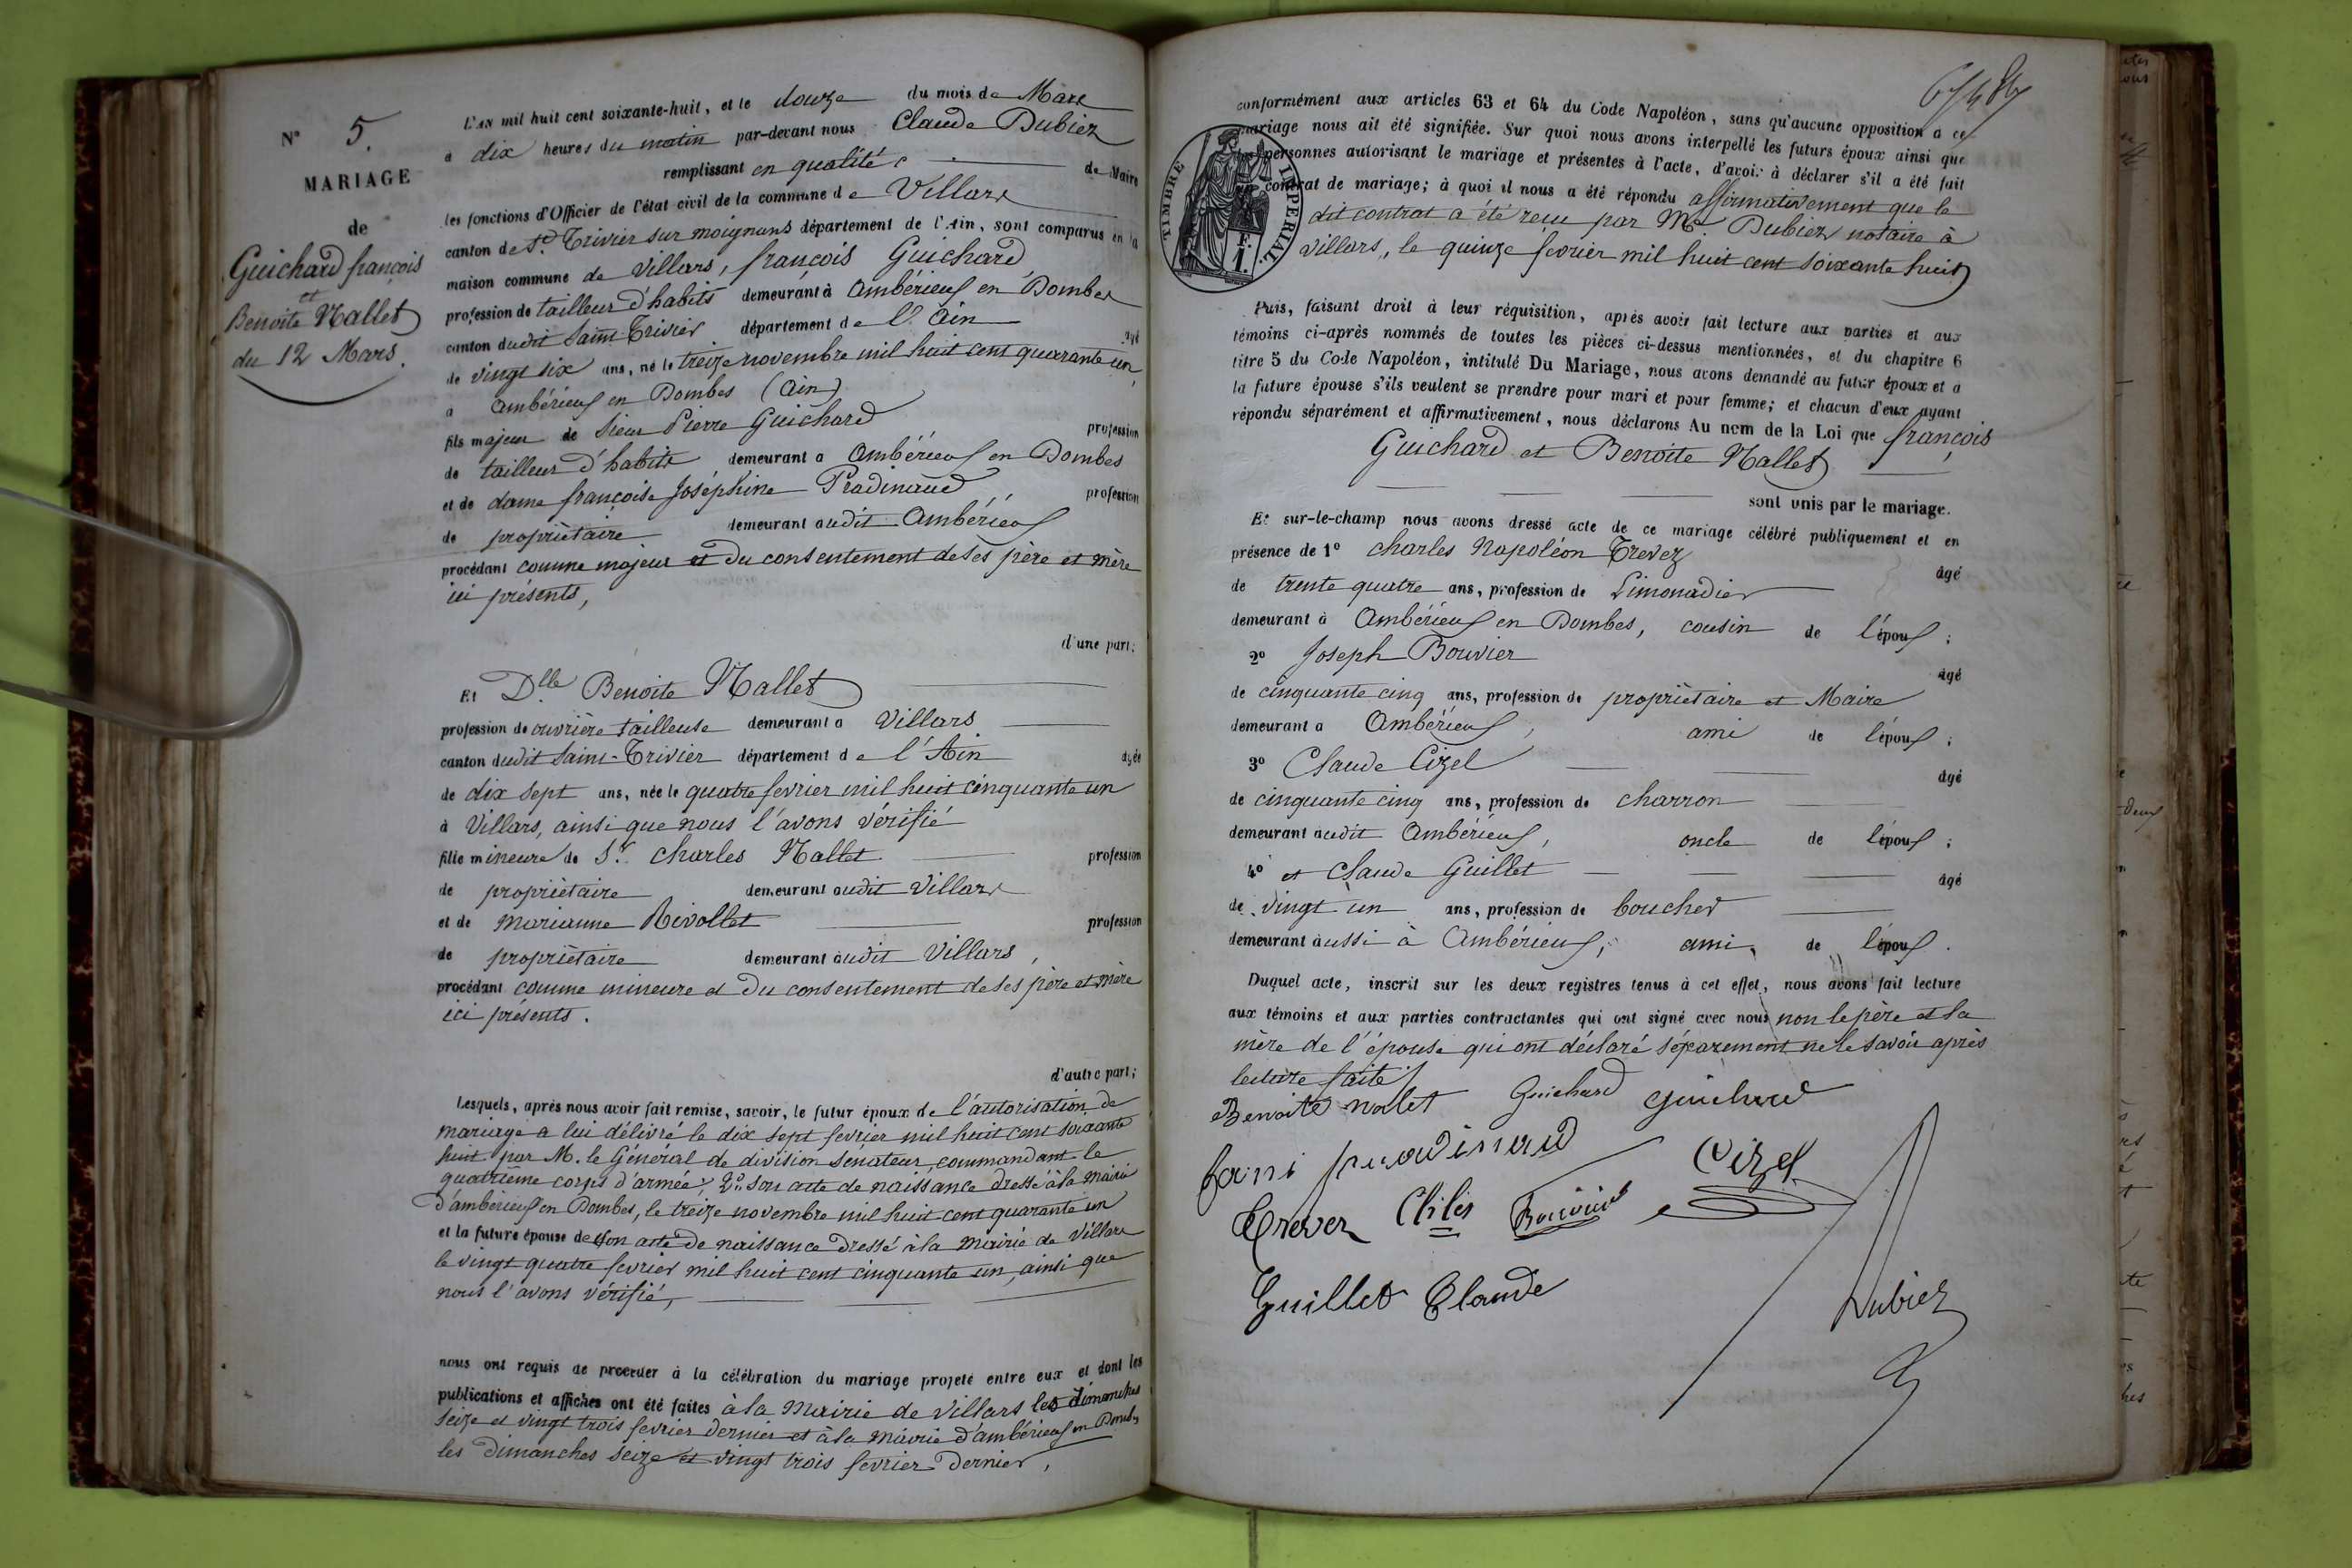 N° 5.
MARIAGE
de
Guichard françois
et
Benoite Nallet
du 12 Mars.
L'AN mil huit cent soixante-huit, et le douze du mois de Mars
à dix heures du matin par-devant nous Claude Dubiez
remplissant en qualité de Maire
les fonctions d'Officier de l'état civil de la commune de Villars
canton de St. Trivier sur moignans département de l'Ain, sont comparus en la
maison commune de Villars, françois Guichard
profession de tailleur d'habits demeurant à Ambérieux en Dombes
canton dudit Saint-Trivier département de l'Ain âgé
de vingt six ans, né le treize novembre mil huit cent quarante un,
à Ambérieux en Dombes (Ain)
fils majeur de Sieur Pierre Guichard profession
de tailleur d'habits demeurant à Ambérieux en Dombes
et de dame françoise Joséphine Pradinaud profession
de propriétaire demeurant audit Ambérieux
procédant comme majeur et du consentement de ses père et mère
ici présents,
d'une part;
Et Dlle Benoite Nallet
profession de ouvrière tailleuse demeurant à Villars
canton dudit Saint-Trivier département de l'Ain âgée
de dix sept ans, née le quatre fevrier mil huit cinquante un
à Villars, ainsi que nous l'avons vérifié
fille mineure de Sr. Charles Nallet profession
de propriétaire demeurant audit Villars
et de Marianne Rivollet profession
de propriétaire demeurant audit Villars,
procédant comme mineure et du consentement de ses père et mère
ici présents.
d'autre part;
Lesquels, après nous avoir fait remise, savoir, le futur époux de l'autorisation de
mariage a lui délivré le dix sept fevrier mil huit cent soixante
huit par M. le Général de division Sénateur, commandant le
quatrième corps d'armée; 2° son acte de naissance dressé à la mairie
d'ambérieux en Dombes, le treize novembre mil huit cent quarante un
et la future épouse de son acte de naissance dressé à la mairie de Villars
le vingt quatre fevrier mil huit cent cinquante un, ainsi que
nous l'avons vérifié,
nous ont requis de procéder à la célébration du mariage projeté entre eux et dont les
publications et affiches ont été faites à la Mairie de Villars les dimanches
seize et vingt trois fevrier dernier et à la mairie d'ambérieux en Dombes
les dimanches seize et vingt trois fevrier dernier,
conformément aux articles 63 et 64 du Code Napoléon, sans qu'aucune opposition à ce
mariage nous ait été signifiée. Sur quoi nous avons interpellé les futurs époux ainsi que
les personnes autorisant le mariage et présentes à l'acte, d'avoir à déclarer s'il a été fait
contrat de mariage; à quoi il nous a été répondu affirmativement que le
dit contrat a été reçu par Me. Dubiez notaire à
villars, le quinze fevrier mil huit cent soixante huit
TIMBRE IMPERIAL
Puis, faisant droit à leur réquisition, après avoir fait lecture aux parties et aux
témoins ci-après nommés de toutes les pièces ci-dessus mentionnées, et du chapitre 6
titre 5 du Code Napoléon, intitulé Du Mariage, nous avons demandé au futur époux et à
la future épouse s'ils veulent se prendre pour mari et pour femme; et chacun d'eux ayant
répondu séparément et affirmativement, nous déclarons Au nom de la Loi que françois
Guichard et Benoite Nallet
sont unis par le mariage.
Et sur-le-champ nous avons dressé acte de ce mariage célébré publiquement et en
présence de 1° Charles Napoléon Trever âgé
de trente quatre ans, profession de Limonadier
demeurant à Ambérieux en Dombes, cousin de l'époux;
2° Joseph Bouvier âgé
de cinquante cinq ans, profession de propriétaire et Maire
demeurant à Ambérieux, ami de l'époux;
3° Claude Cizel âgé
de cinquante cinq ans, profession de charron
demeurant audit Ambérieux, oncle de l'époux;
4° et Claude Guillet âgé
de vingt un ans, profession de boucher
demeurant aussi à Ambérieux, ami de l'époux.
Duquel acte, inscrit sur les deux registres tenus à cet effet, nous avons fait lecture
aux témoins et aux parties contractantes qui ont signé avec nous non le père et la
mère de l'épouse qui ont déclaré séparément ne le savoir après
lecture faite
Benoite nalet Guichard Guichard
fani pradinaud Cizel
Trever Chles Bouvier
Guillet Claude
Dubiez